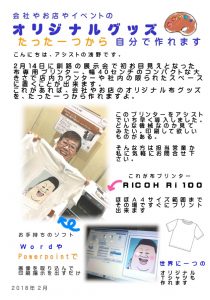 会社やお店やイベントの
オリジナルグッズ
たった一つから 自分で作れます
こんにちは、アシストの浅野です。
2月14日に釧路の展示会で初お目見えとなった
布専用プリンター。幅40センチのコンパクトな大
きさで店内の限られたスペースや社
これがあれば、会社やお店のオリジナル布グッズ
を、たった一つから作れますよ。
このプリンターをアシスト
でいち早く導入しました。
どんな機械なのか見て
みたい、印刷して欲しい
ものがある。
そんな方は担当営業か
私に気軽にお声掛け下
さい。
これが布プリンター
RICOH Ri 100
ほぼA4サイズ範囲まで
その場で印刷が出来ます
お手持ちのソフト
Wordや
Powerpointで
画像を取り込んで
印刷指示を出すだけ
世界に一つの
オリジナル
Tシャツが
出来ます
2018年2月